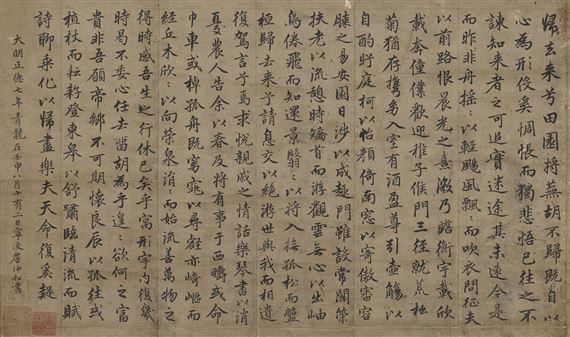 歸去來兮田園將蕪胡不歸既自以
心為形役奚惆悵而獨悲悟已往之不
諫知來者之可追實迷途其未遠今是
而昨非舟搖〻以輕颺風飄〻而吹衣問征夫
以前路恨晨光之熹微乃瞻衡宇載欣
載奔僮僕歡迎稚子候門三徑就荒松
菊猶存攜幼入室有酒盈尊引壺觴以
自酌眄庭柯以怡顏倚南窗以寄傲審容
膝之易安園日涉以成趣門雖設常關策
扶老以流憩時矯首而游觀雲無心以出岫
鳥倦飛而知還景翳〻以將入撫孤松而盤
桓歸去來兮請息交以絕游世與我而相遺
復駕言兮焉求悅親戚之情話樂琴書以消
憂農人告余以春及將有事于西疇或命
巾車或棹孤舟既窈窕以尋壑亦崎嶇而
經丘木欣〻以向榮泉涓〻而始流善萬物之
得時感吾生之行休已矣乎寓形宇內復幾
時曷不委心任去留胡為乎遑〻欲何之富
貴非吾願帝鄉不可期懷良辰以孤往或
植杖而耘耔登東皋以舒嘯臨清流而賦
詩聊乘化以歸盡樂夫天命復奚疑
大明正德七年青龍在壬申月十有二寧波唐仲書